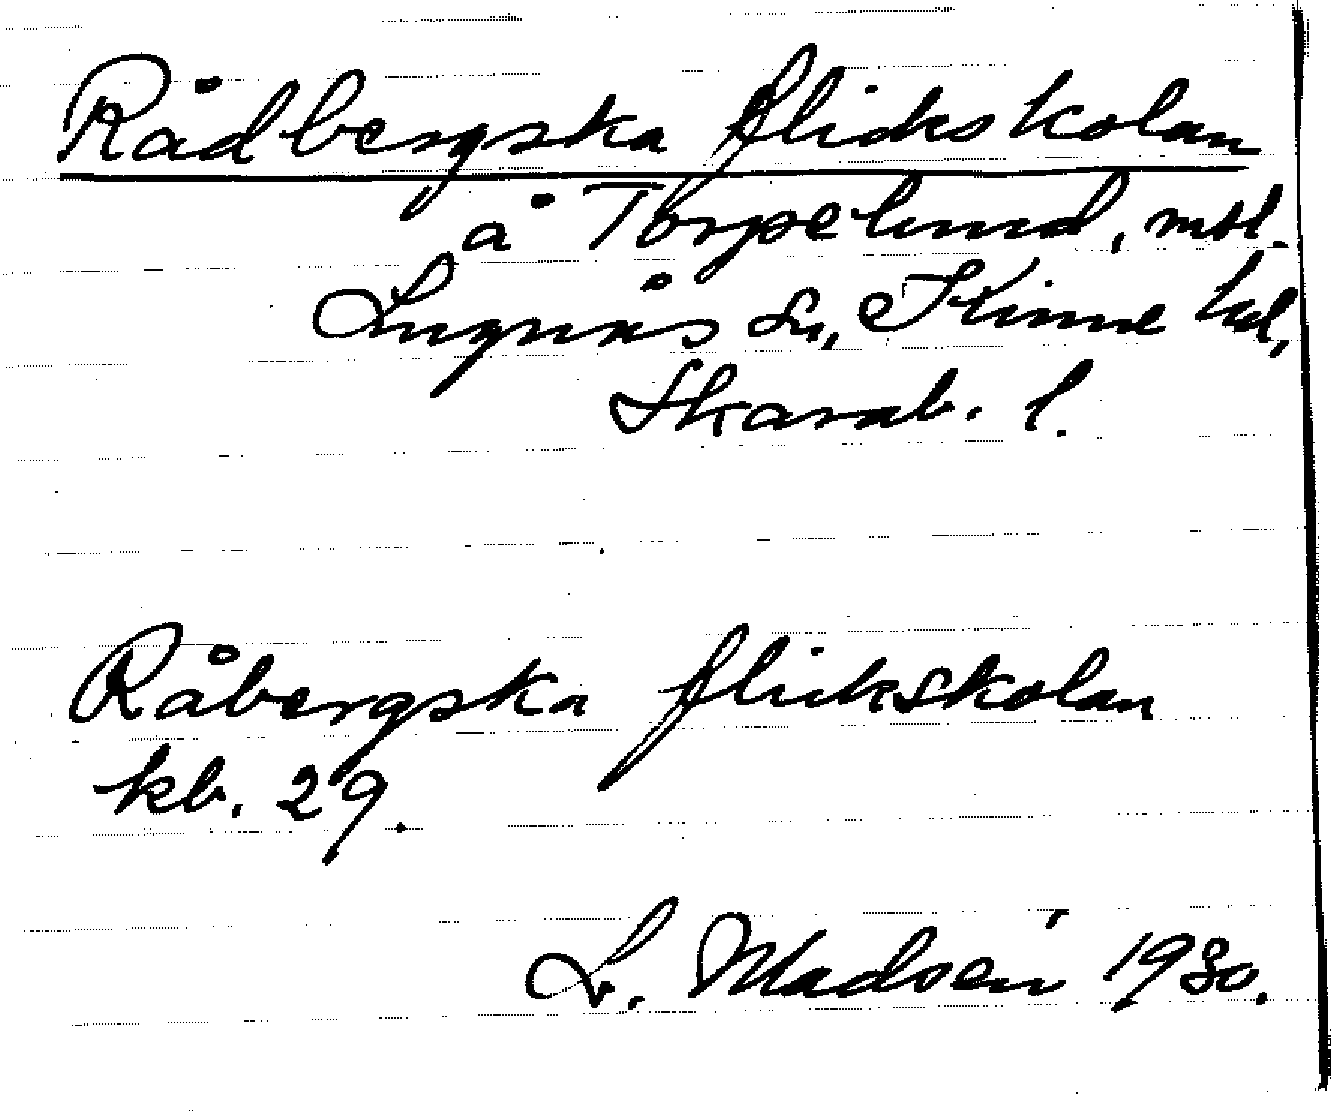 Rådbergska flickskolan
å Torpelund, mtl.
Lugnås sn, Kinne hd,
Skarab. l.
Råbergska flickskolan
kb. 29.
L. Madsén 1930.